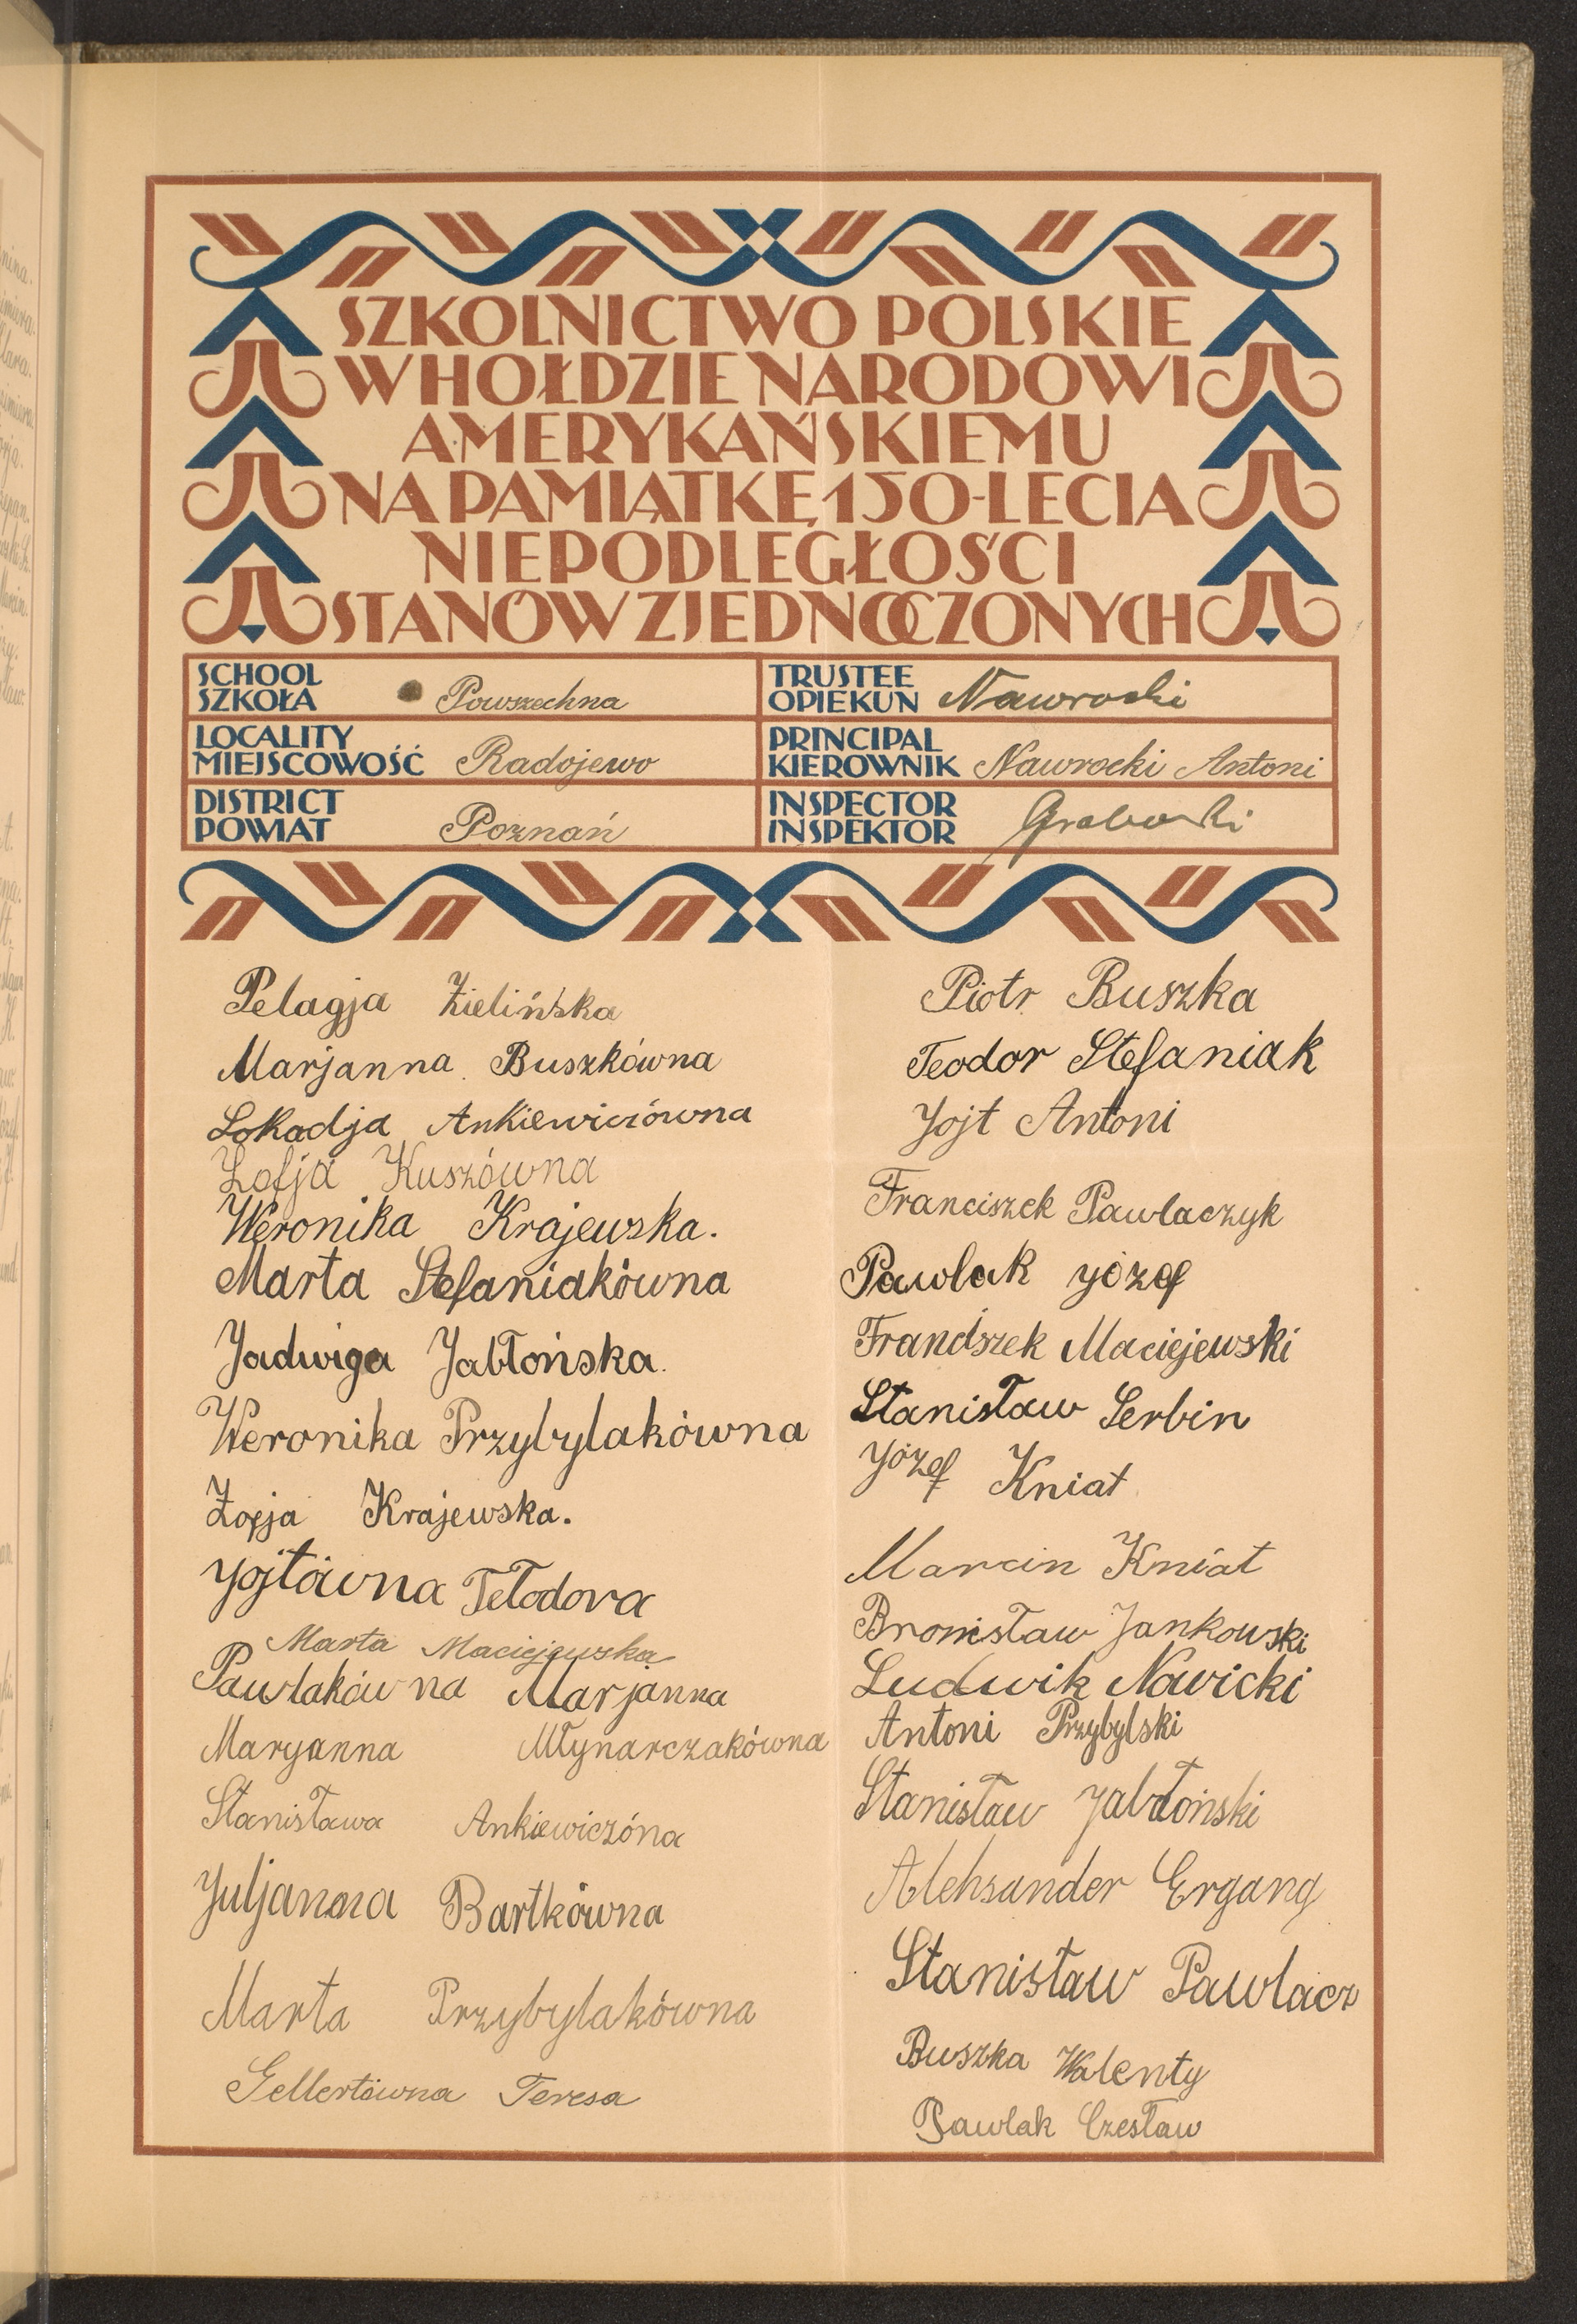 SZKOLNICTWO POLSKIE
W HOŁDZIE NARODOWI
AMERYKAŃSKIEMU
NA PAMIĄTKĘ 150-LECIA
NIEPODLEGŁOŚCI
STANÓW ZJEDNOCZONYCH
SCHOOL
SZKOŁA Powszechna
TRUSTEE
OPIEKUN Nawrocki
LOCALITY
MIEJSCOWOŚĆ Radojewo
PRINCIPAL
KIEROWNIK Nawrocki Antoni
DISTRICT
POWIAT Poznań
INSPECTOR
INSPEKTOR Grabowski
Pelagja Zielińska
Marjanna Buszkówna
Lokadja Ankiewiczówna
Zofja Kuszówna
Weronika Krajewska.
Marta Stefaniakówna
Jadwiga Jabłońska.
Weronika Przybylakówna
Zofja Krajewska.
Yojtówna Tełodora
Marta Maciejewska
Pawlakówna Marjanna
Maryanna Młynarczakówna
Stanisława Ankiewiczóna
Juljanna Bartkówna
Marta Przybylakówna
Gellertówna Teresa
Piotr Buszka
Teodor Stefaniak
Yojt Antoni
Franciszek Pawlaczyk
Pawlak Józef
Franciszek Maciejewski
Stanisław Serbin
Józef Kniat
Marcin Kniat
Bronisław Jankowski
Ludwik Nowicki
Antoni Przybylski
Stanisław Jabłoński
Aleksander Ergang
Stanisław Pawlacz
Buszka Walenty
Pawlak Czesław